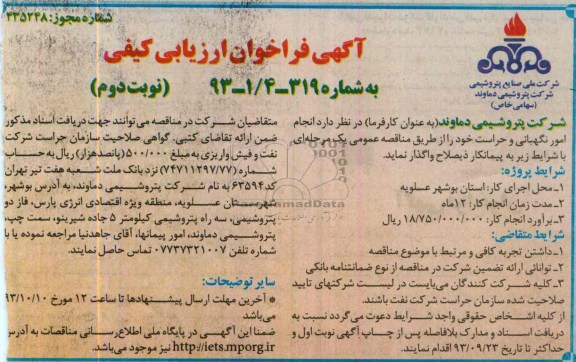 شماره مجوز: ۳۳۵۲۳۸
آگهی فراخوان ارزیابی کیفی
به شماره ۳۱۹-۱/۴-۹۳ (نوبت دوم)
شرکت ملی صنایع پتروشیمی
شرکت پتروشیمی دماوند
(سهامی خاص)
شرکت پتروشیمی دماوند(به عنوان کارفرما) در نظر دارد انجام
امور نگهبانی و حراست خود را از طریق مناقصه عمومی یک مرحله‌ای
با شرایط زیر به پیمانکار ذیصلاح واگذار نماید.
شرایط پروژه:
۱-محل اجرای کار: استان بوشهر عسلویه
۲-مدت زمان انجام کار: ۱۲ماه
۳-برآورد انجام کار: ۱۸/۷۵۰/۰۰۰/۰۰۰ ریال
شرایط متقاضی:
۱-داشتن تجربه کافی و مرتبط با موضوع مناقصه
۲-توانائی ارائه تضمین شرکت در مناقصه از نوع ضمانتنامه بانکی
۳-کلیه شرکت کنندگان می‌بایست در لیست شرکتهای تایید
صلاحیت شده سازمان حراست شرکت نفت باشند.
از کلیه اشخاص حقوقی واجد شرایط دعوت می‌گردد نسبت به
دریافت اسناد و مدارک بلافاصله پس از چاپ آگهی نوبت اول و
حداکثر تا تاریخ ۹۳/۰۹/۲۳ اقدام نمایند.
متقاضیان شرکت در مناقصه می‌توانند جهت دریافت اسناد مذکور
ضمن ارائه تقاضای کتبی، گواهی صلاحیت سازمان حراست شرکت
نفت و فیش واریزی به مبلغ ۵۰۰/۰۰۰ (پانصدهزار) ریال به حساب
شماره (۷۴۷۱۱۲۹۷/۷۷) نزد بانک ملت شعبه هفت تیر تهران
کد ۶۳۵۹۴ به نام شرکت پتروشیمی دماوند، به آدرس بوشهر،
شهرستان عسلویه، منطقه ویژه اقتصادی انرژی پارس، فاز دو
پتروشیمی، سه راه پتروشیمی کیلومتر ۵ جاده شیرینو، سمت چپ،
پتروشیمی دماوند، امور پیمانها، آقای جاهدنیا مراجعه نموده یا با
شماره تلفن ۰۷۷۳۷۳۲۱۰۰۷ تماس حاصل نمایند.
سایر توضیحات:
* آخرین مهلت ارسال پیشنهادها تا ساعت ۱۲ مورخ ۹۳/۱۰/۱۰
می‌باشد
ضمنا این آگهی در پایگاه ملی اطلاع‌رسانی مناقصات به آدرس
http://iets.mporg.ir نیز موجود می‌باشد.